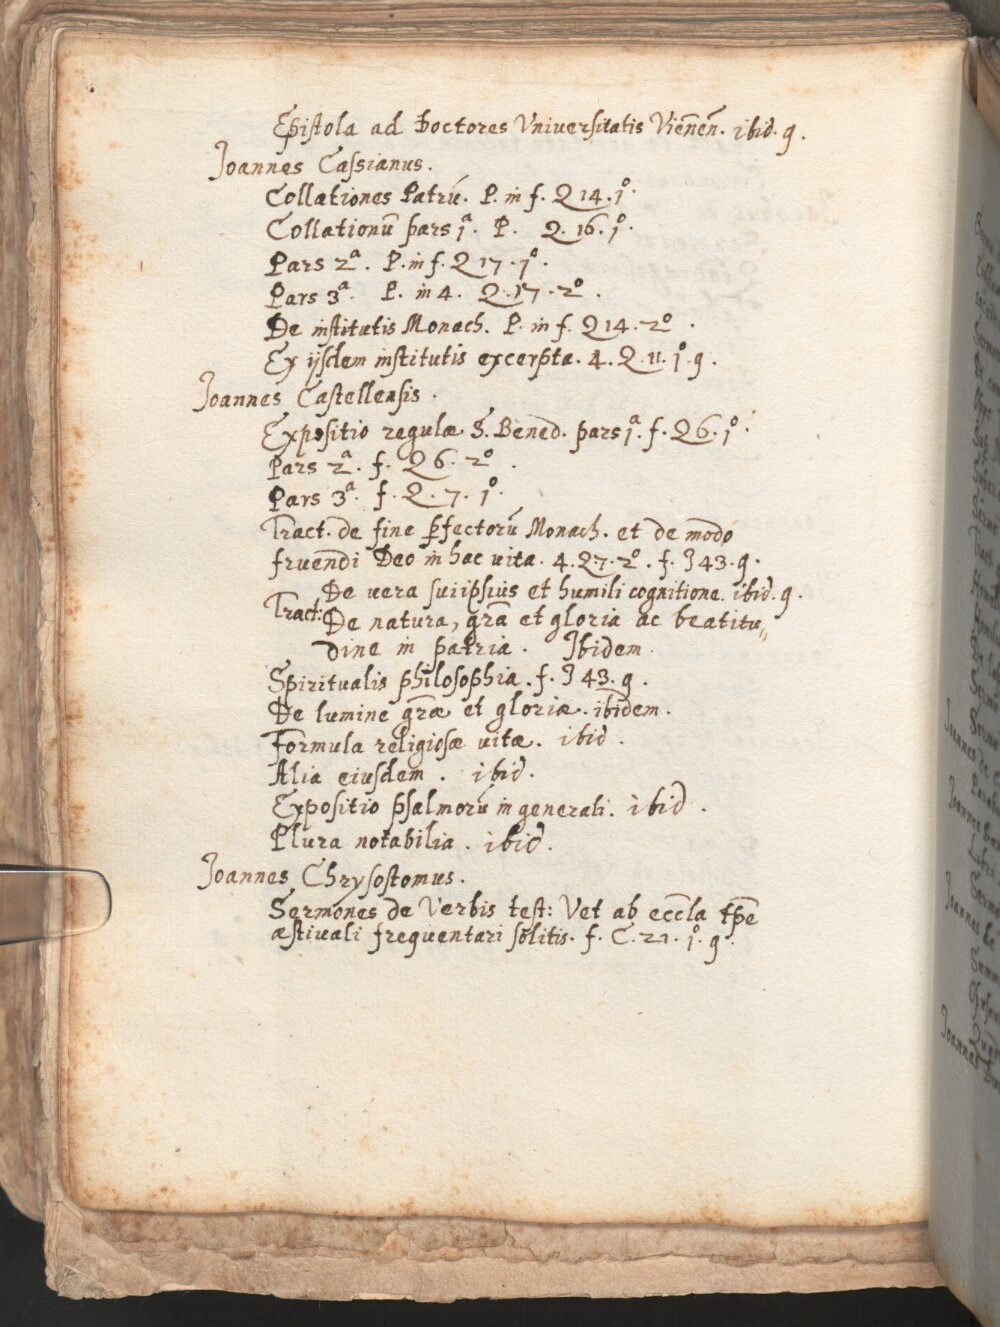 Epistola ad Doctores Vniuersitatis Vieñeñ. ibid. 9.
Joannes Cassianus.
Collationes Patrũ. P. in f. Q 14. 1º.
Collationũ pars 1ª. P. Q. 16. 1º.
Pars 2ª. P. in f. Q 17. 1º.
Pars 3ª. P. in 4. Q. 17. 2º.
De institutis Monach. P. in f. Q 14. 2º.
Ex ijsdem institutis excerpta. 4. Q. 11. 1º. 9.
Joannes Castellensis.
Expositio regulæ S. Bened. pars 1ª. f. Q 6. 1º.
Pars 2ª. f. Q 6. 2º.
Pars 3ª. f. Q. 7. 1º.
Tract. de fine p̃fectorũ Monach. et de modo
fruendi Deo in hac uita. 4. Q 7. 2º. f. J 43. 9.
Tract: De uera suiipsius et humili cognitione. ibid. 9.
De natura, gr̃a et gloria ac beatitu„
dine in patria. Ibidem.
Spiritualis philosophia. f. J 43. 9.
De lumine gr̃æ et gloriæ. ibidem.
Formula religiosæ uitæ. ibid.
Alia eiusdem. ibid.
Expositio psalmorũ in generali. ibid.
Plura notabilia. ibid.
Joannes Chrysostomus.
Sermones de Verbis test: Vet ab eccl̃a tp̃e
æstiuali frequentari solitis. f. C. 21. 1º. 9.